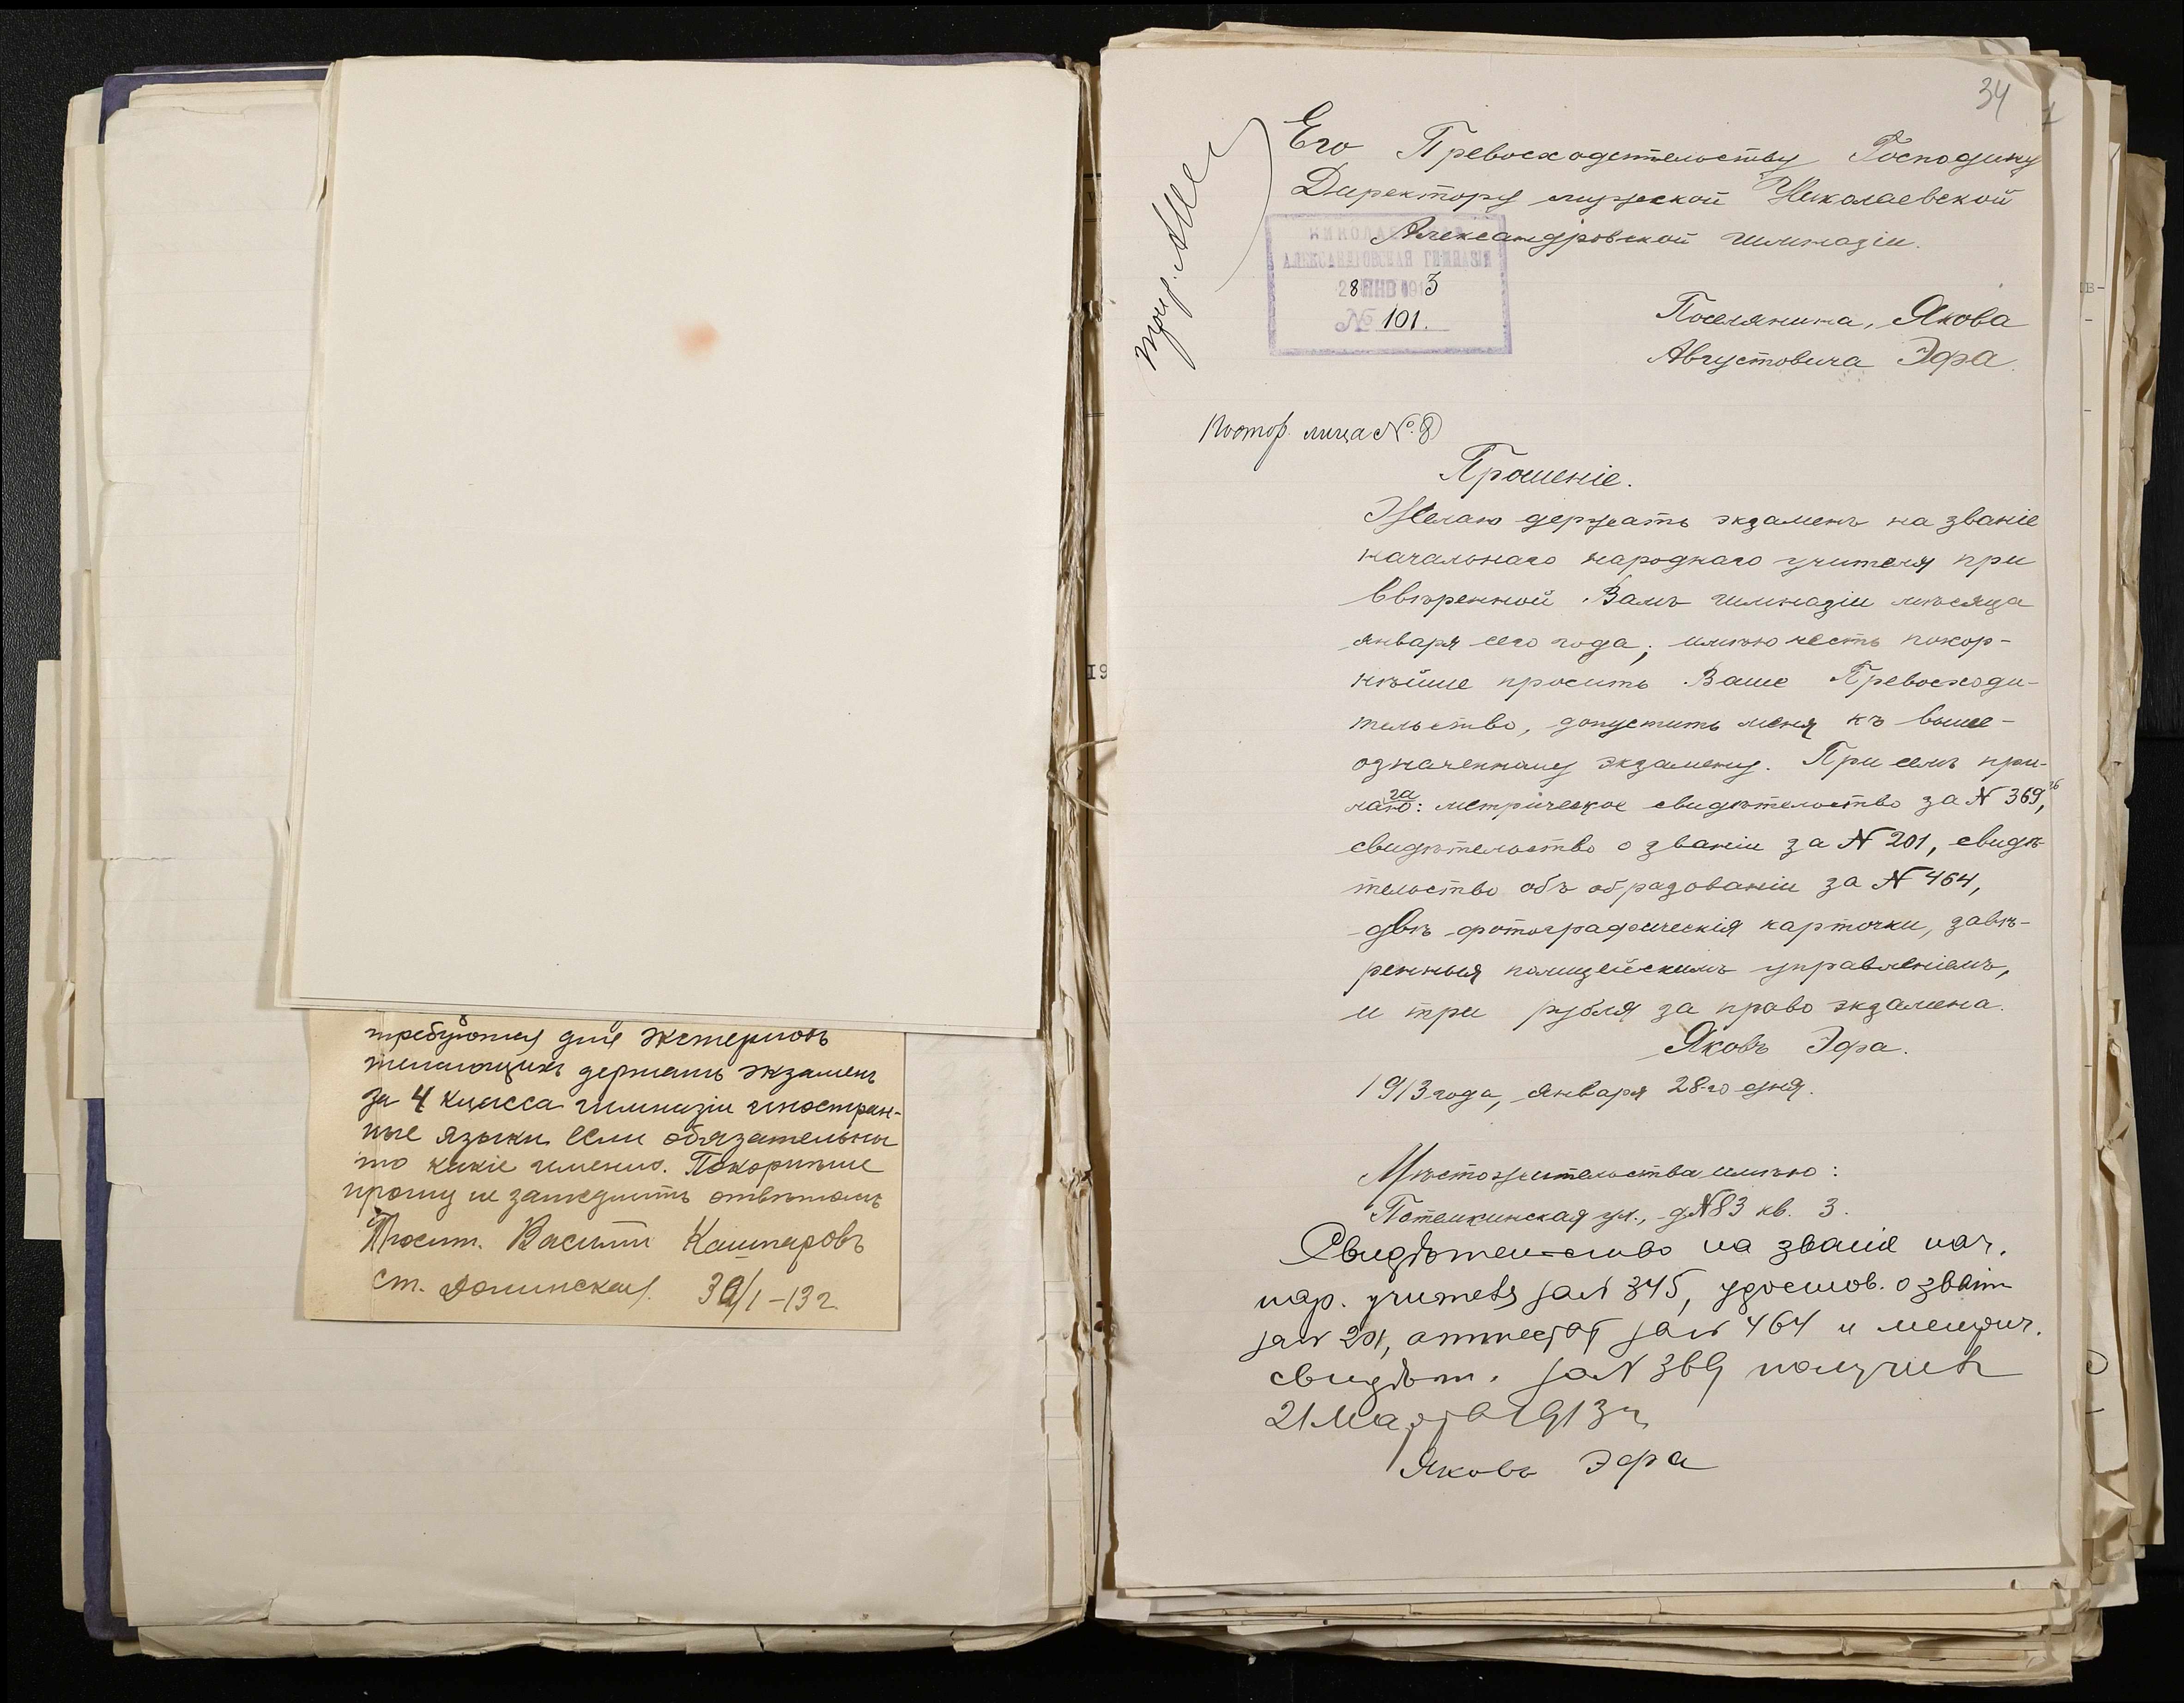 требуются для экстерновъ
желающихъ держать экзаменъ
за 4 класса гимназіи иностран-
ные языки если обязательны
то какіе именно. Покорнѣше
прошу не замедлить отвѣтомъ
Просит. Василій Кашпаровъ
ст. Долинская. 30/1 -13 г.
34
Его Превосходительству Господину
Директору мужской Николаевской
Александровской гимназіи.
НИКОЛАЕВСКАЯ
АЛЕКСАНДРОВСКАЯ ГИМНАЗІЯ
28 ЯНВ 1913
№ 101.
Поселянина, Якова
Августовича Эфа.
Постор. лица № 8
Прошеніе.
Желаю держать экзаменъ на званіе
начальнаго народнаго учителя при
ввѣренной Вамъ гимназіи мѣсяца
января сего года; имѣю честь покор-
нѣйше просить Ваше Превосходи-
тельство, допустить меня къ выше-
означенному экзамену. При семъ при-
лагаю: метрическое свидѣтельство за N 369,
свидѣтельство о званіи за N 201, свидѣ-
тельство объ образованіи за N 464,
двѣ фотографическія карточки, завѣ-
ренныя полицейскимъ управленіемъ,
и три рубля за право экзамена.
Яковъ Эфа.
1913 года, января 28-го дня.
Мѣстожительства имѣю:
Потемкинская ул., д N 83 кв. 3.
Свидѣтельство на званіе нач.
нар. учителя за N 345, удостов. о званіи
за N 201, аттестат за N 464 и метрич.
свидѣт. за N 369 получилъ
21 Марта 1913 г.
Яковъ Эфа